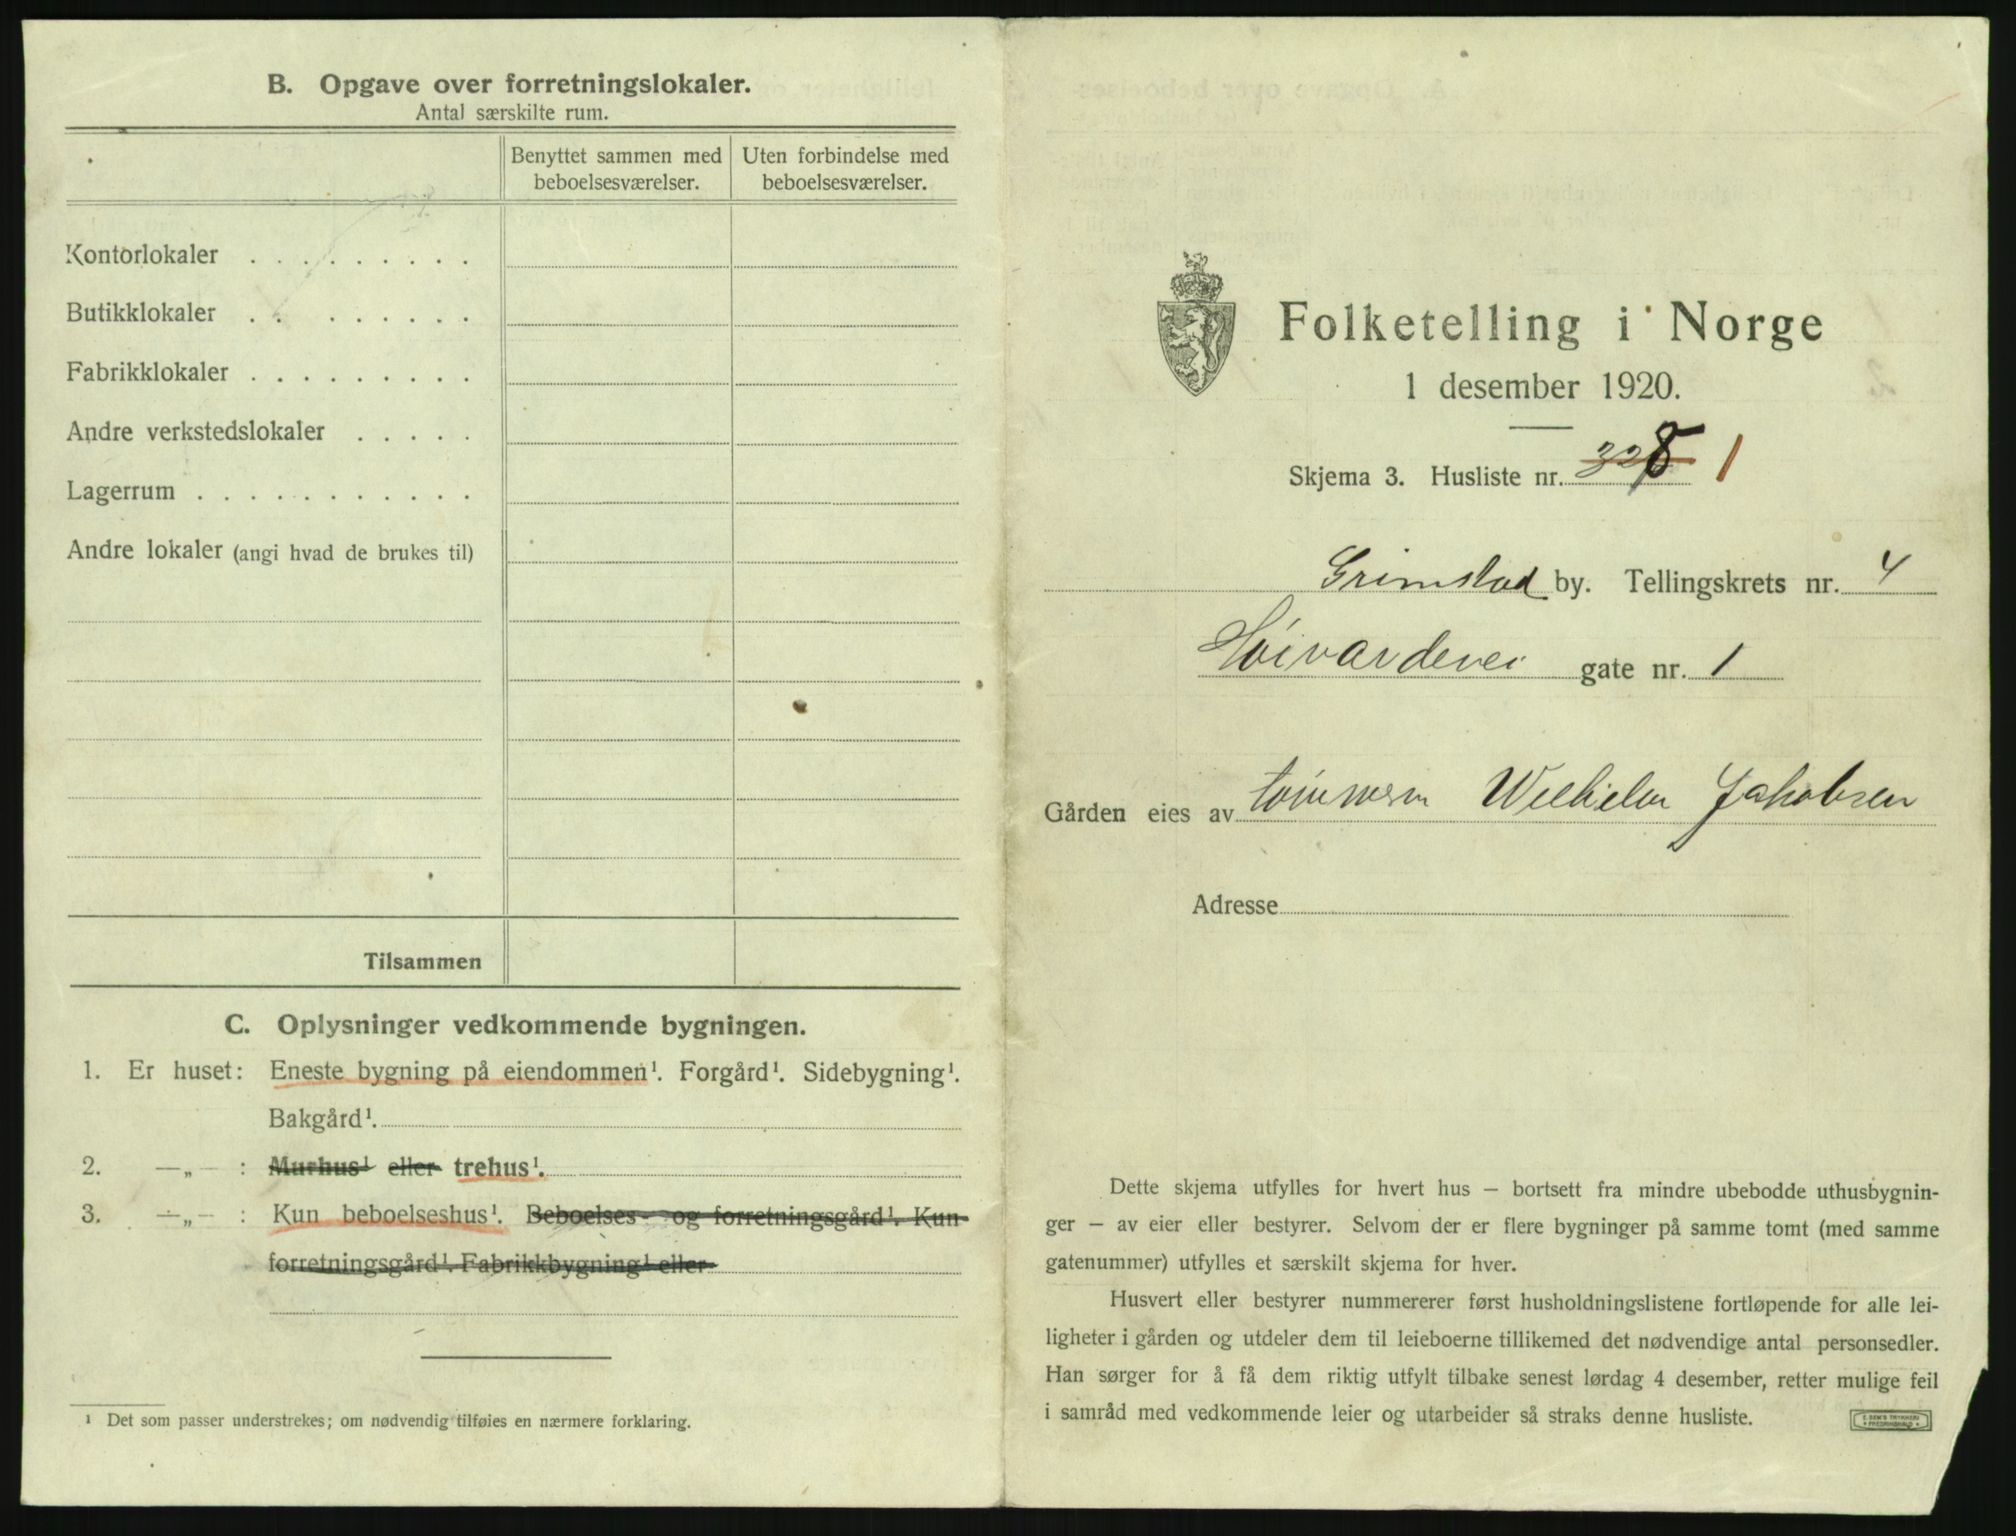 B. Opgave over forretningslokaler.
Antal særskilte rum.
Benyttet sammen med beboelsesværelser.
Uten forbindelse med beboelsesværelser.
Kontorlokaler . . . . . . . . .
Butikklokaler . . . . . . . .
Fabrikklokaler . . . . . . . . .
Andre verkstedslokaler . . . . .
Lagerrum . . . . . . . . . . .
Andre lokaler (angi hvad de brukes til)
Tilsammen
C. Oplysninger vedkommende bygningen.
1. Er huset: Eneste bygning på eiendommen¹. Forgård¹. Sidebygning¹.
Bakgård¹.
2. —„— : Murhus¹ eller trehus¹.
3. —„— : Kun beboelseshus¹. Beboelses- og forretningsgård¹. Kun
forretningsgård¹. Fabrikkbygning¹ eller
¹ Det som passer understrekes; om nødvendig tilføies en nærmere forklaring.
Folketelling i Norge
1 desember 1920.
Skjema 3. Husliste nr. 1
Grimstad by. Tellingskrets nr. 4
Høivardevei gate nr. 1
Gården eies av tømmerm Wilhelm Jakobsen
Adresse
Dette skjema utfylles for hvert hus – bortsett fra mindre ubebodde uthusbygnin-
ger – av eier eller bestyrer. Selvom der er flere bygninger på samme tomt (med samme
gatenummer) utfylles et særskilt skjema for hver.
Husvert eller bestyrer nummererer først husholdningslistene fortløpende for alle lei-
ligheter i gården og utdeler dem til leieboerne tillikemed det nødvendige antal personsedler.
Han sørger for å få dem riktig utfylt tilbake senest lørdag 4 desember, retter mulige feil
i samråd med vedkommende leier og utarbeider så straks denne husliste.
E. SEM'S TRYKKERI
FREDRIKSHALD